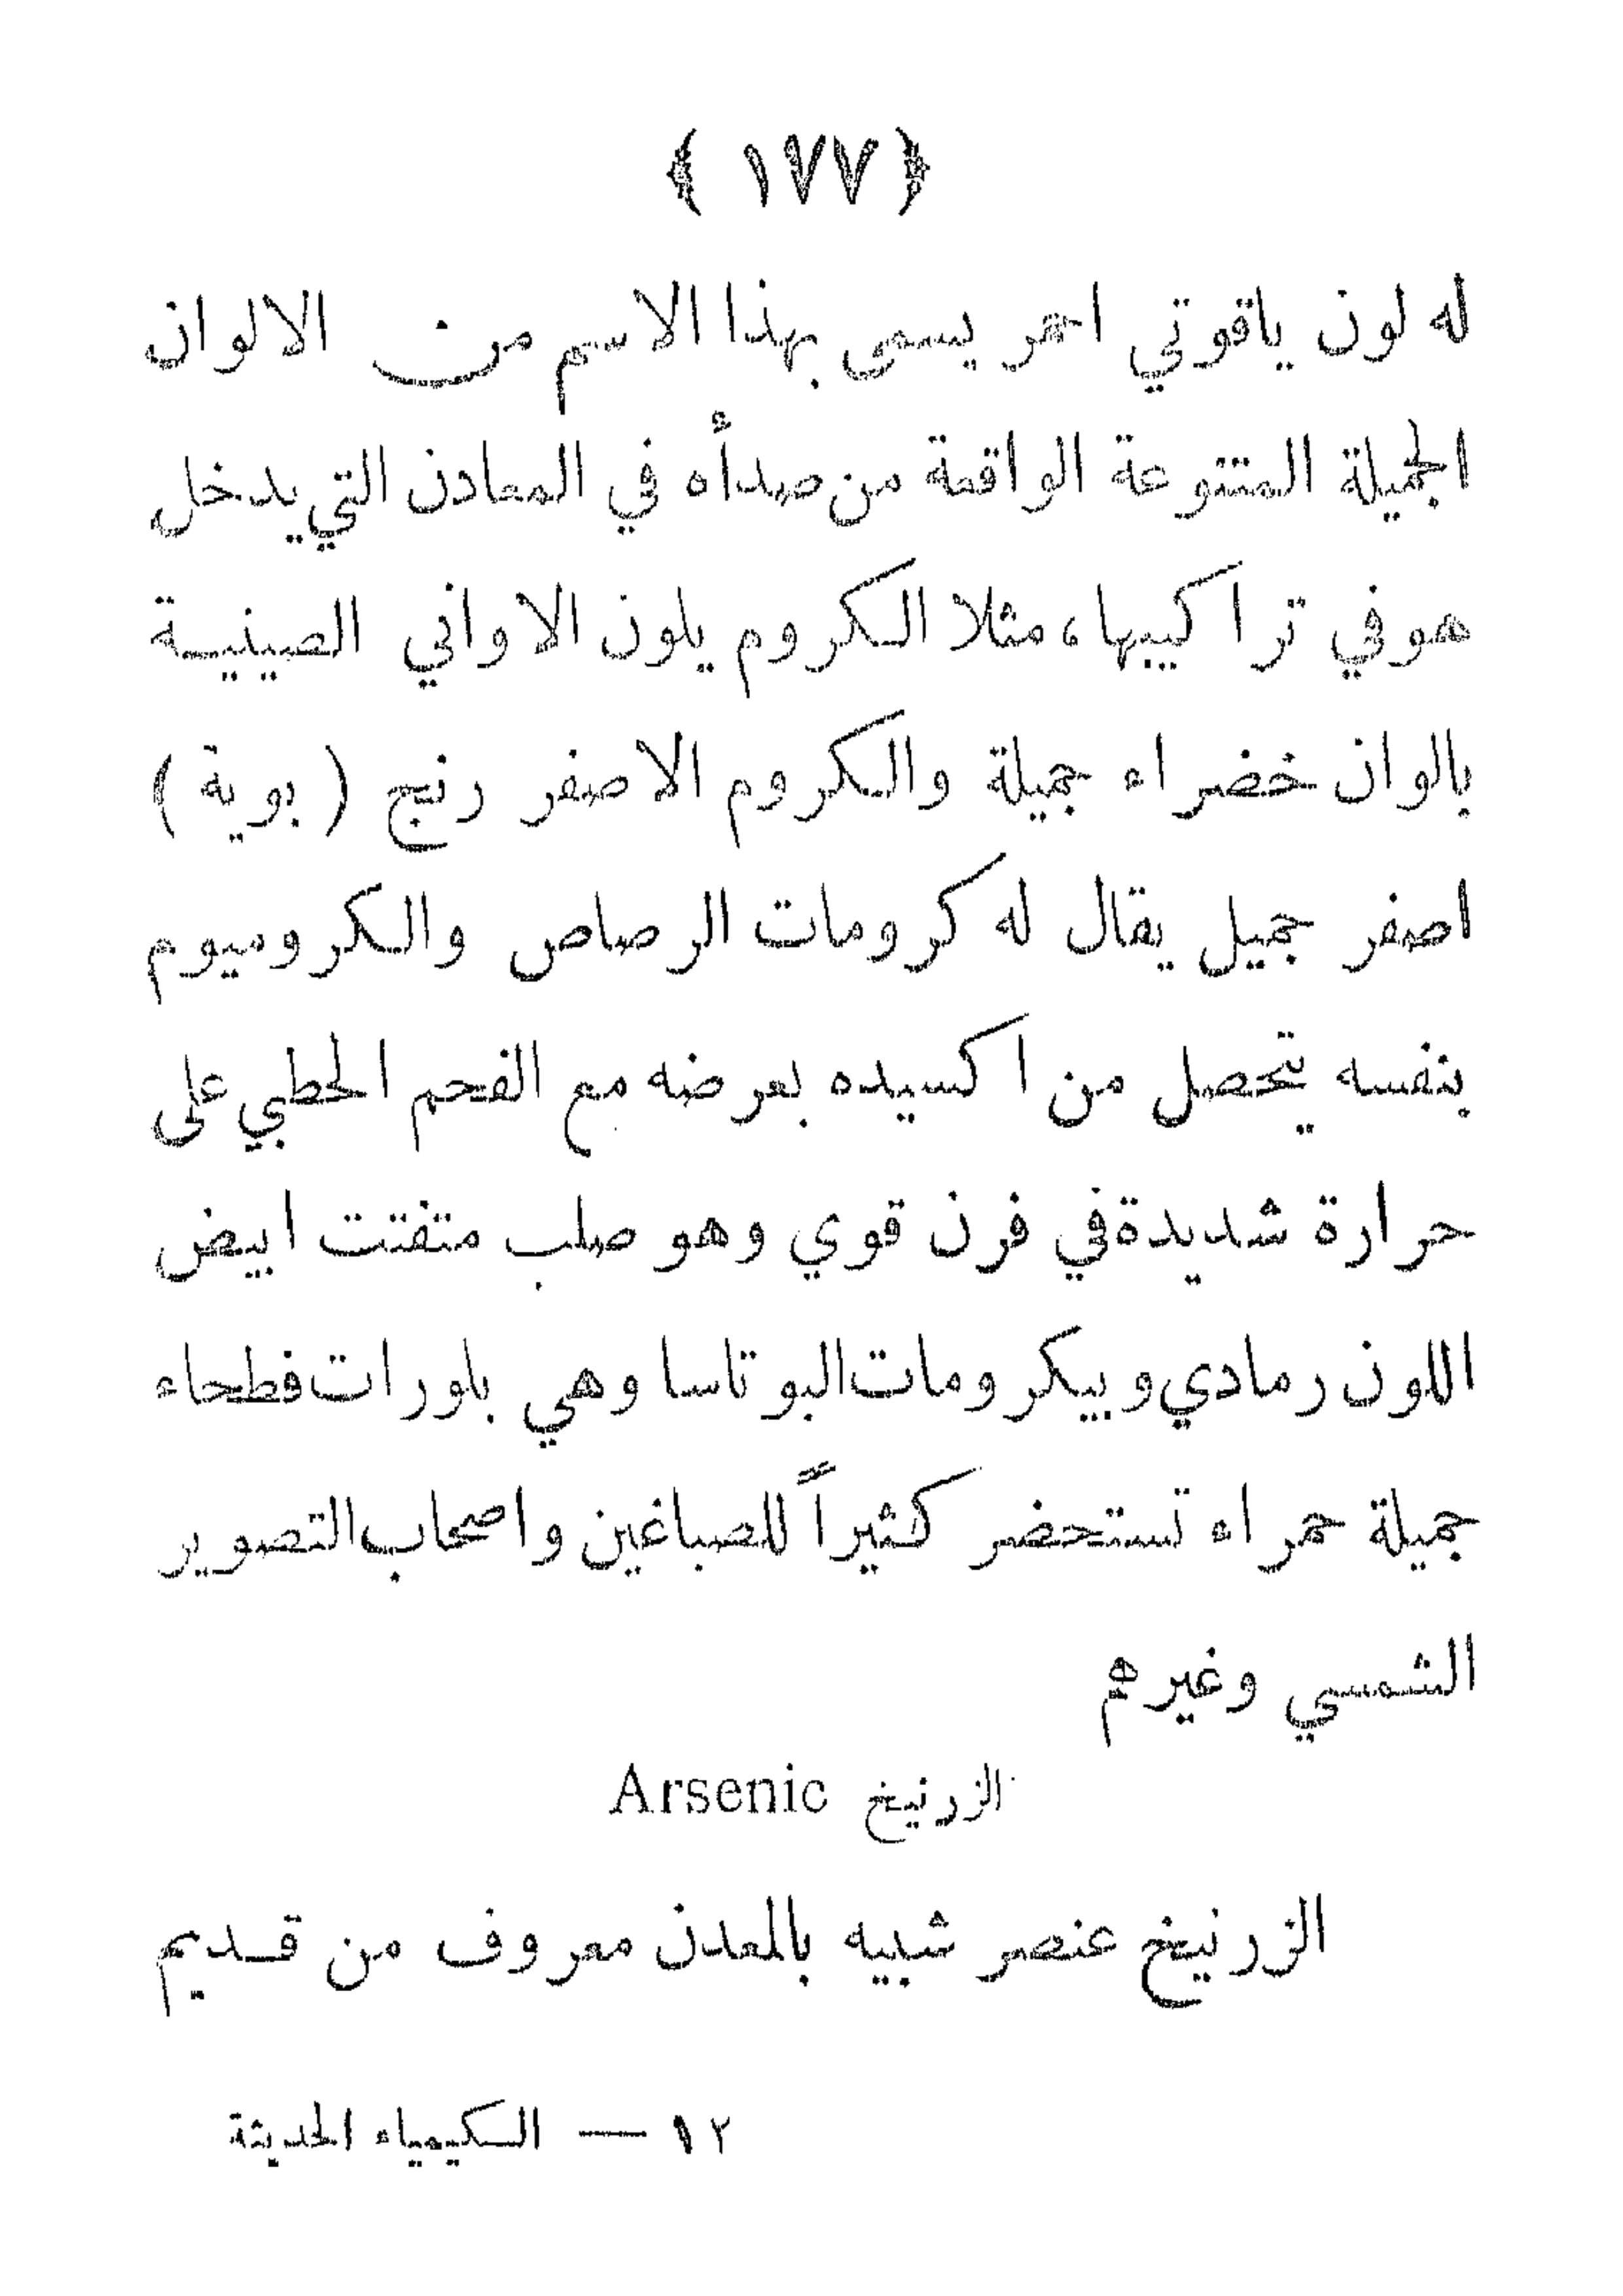 ﴿ ١٧٧ ﴾
له لون ياقوتي احمر يسمى بهذا الاسم من الالوان
الجميلة المتنوعة الواقعة من صدأه في المعادن التي يدخل
هو في تراكيبها، مثلا الكروم يلون الاواني الصينية
بالوان خضراء جميلة والكروم الاصفر رنج ( بوية )
اصفر جميل يقال له كرومات الرصاص والكروميوم
بنفسه يتحصل من اكسيده بعرضه مع الفحم الحطبي على
حرارة شديدة في فرن قوي وهو صلب متفتت ابيض
اللون رمادي وبيكرومات البوتاسا وهي بلورات فطحاء
جميلة حمراء تستحضر كثيراً للصباغين واصحاب التصوير
الشمسي وغيرهم
الزرنيخ Arsenic
الزرنيخ عنصر شبيه بالمعدن معروف من قديم
١٢ — الكيمياء الحديثة